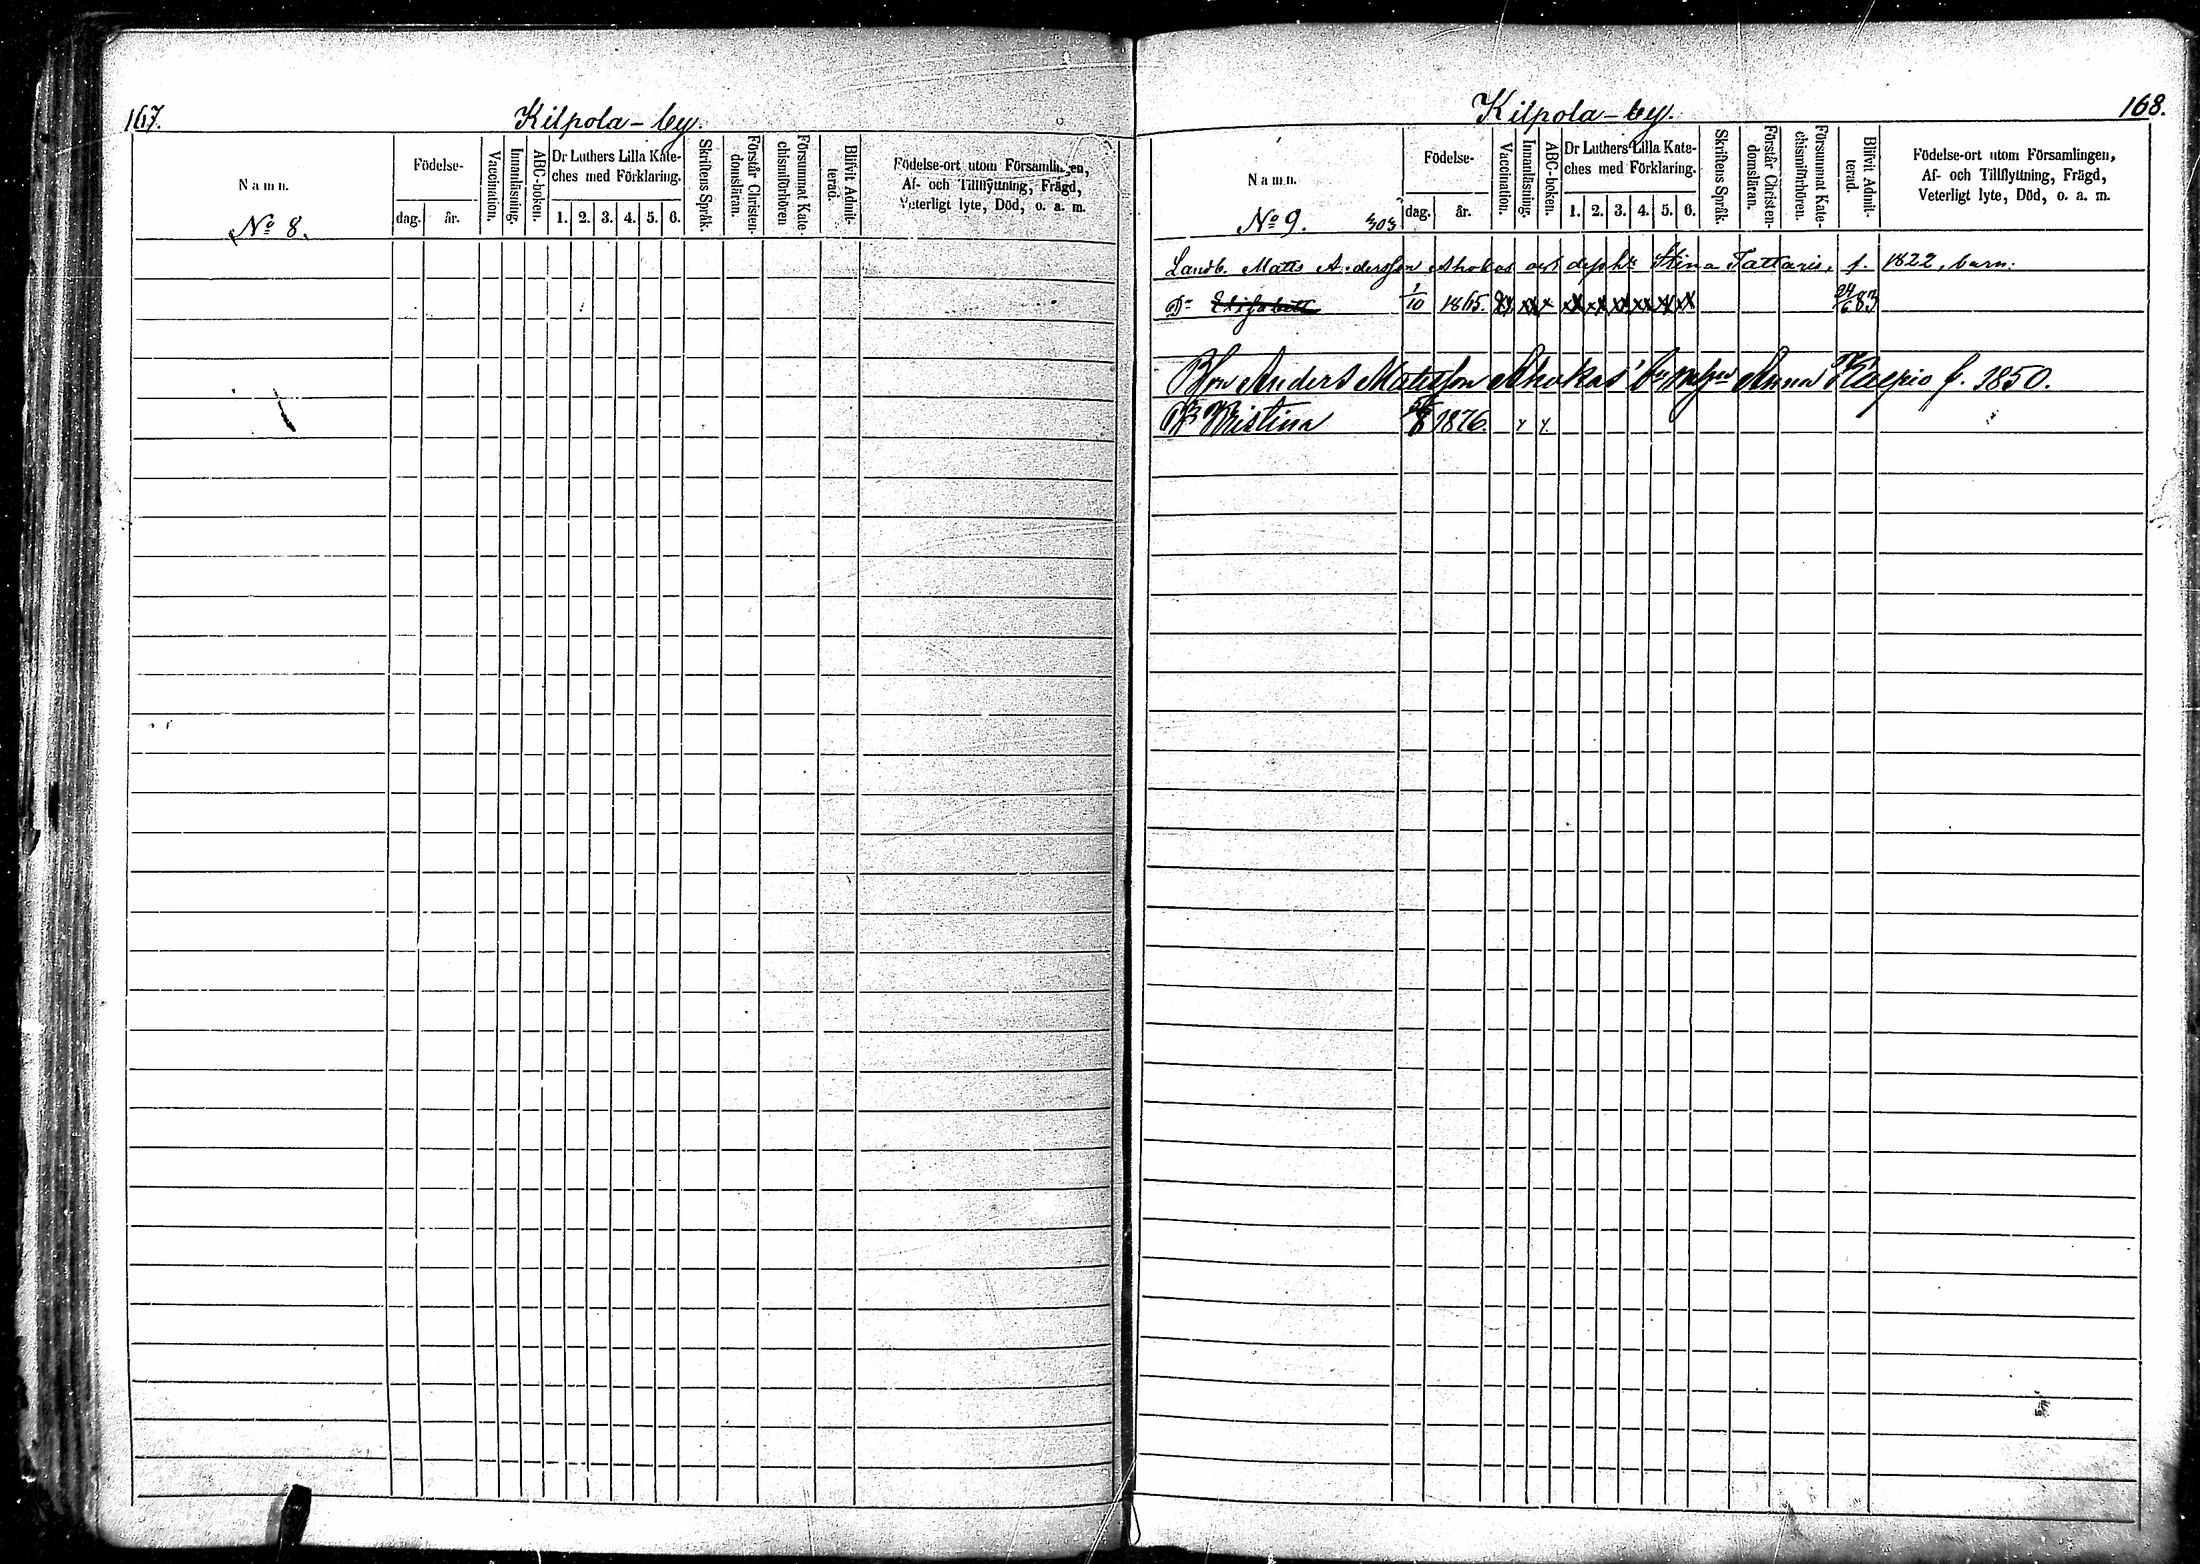 167.
Kilpola-by.
Namn.
No 8.
Födelse-
dag.
år.
Vaccination.
Innanläsning.
ABC-boken.
Dr Luthers Lilla Kate-
ches med Förklaring.
1. 2. 3. 4. 5. 6.
Skriftens Språk.
Förstår Christen-
domsläran.
Försummat Kate-
chismiförhören
Blifvit Admit-
terad.
Födelse-ort utom Församlingen,
Af- och Tillflyttning, Frägd,
Veterligt lyte, Död, o. a. m.
168.
Kilpola-by.
Namn.
No 9.
303
Födelse-
dag.
år.
Vaccination.
Innanläsning.
ABC-boken.
Dr Luthers Lilla Kate-
ches med Förklaring.
1. 2. 3. 4. 5. 6.
Skriftens Språk.
Förstår Christen-
domsläran.
Försummat Kate-
chismiförhören.
Blifvit Admit-
terad.
Födelse-ort utom Församlingen,
Af- och Tillflyttning, Frägd,
Veterligt lyte, Död, o. a. m.
Landb. Matts Andersson Ahokas och Stina Tattaris, f. 1822, barn:
Dr Elisabett 1/10 1865. 24/6 83
Anders Matsson Ahokas' Anna Kaepio f. 1850.
Kristina 1876.